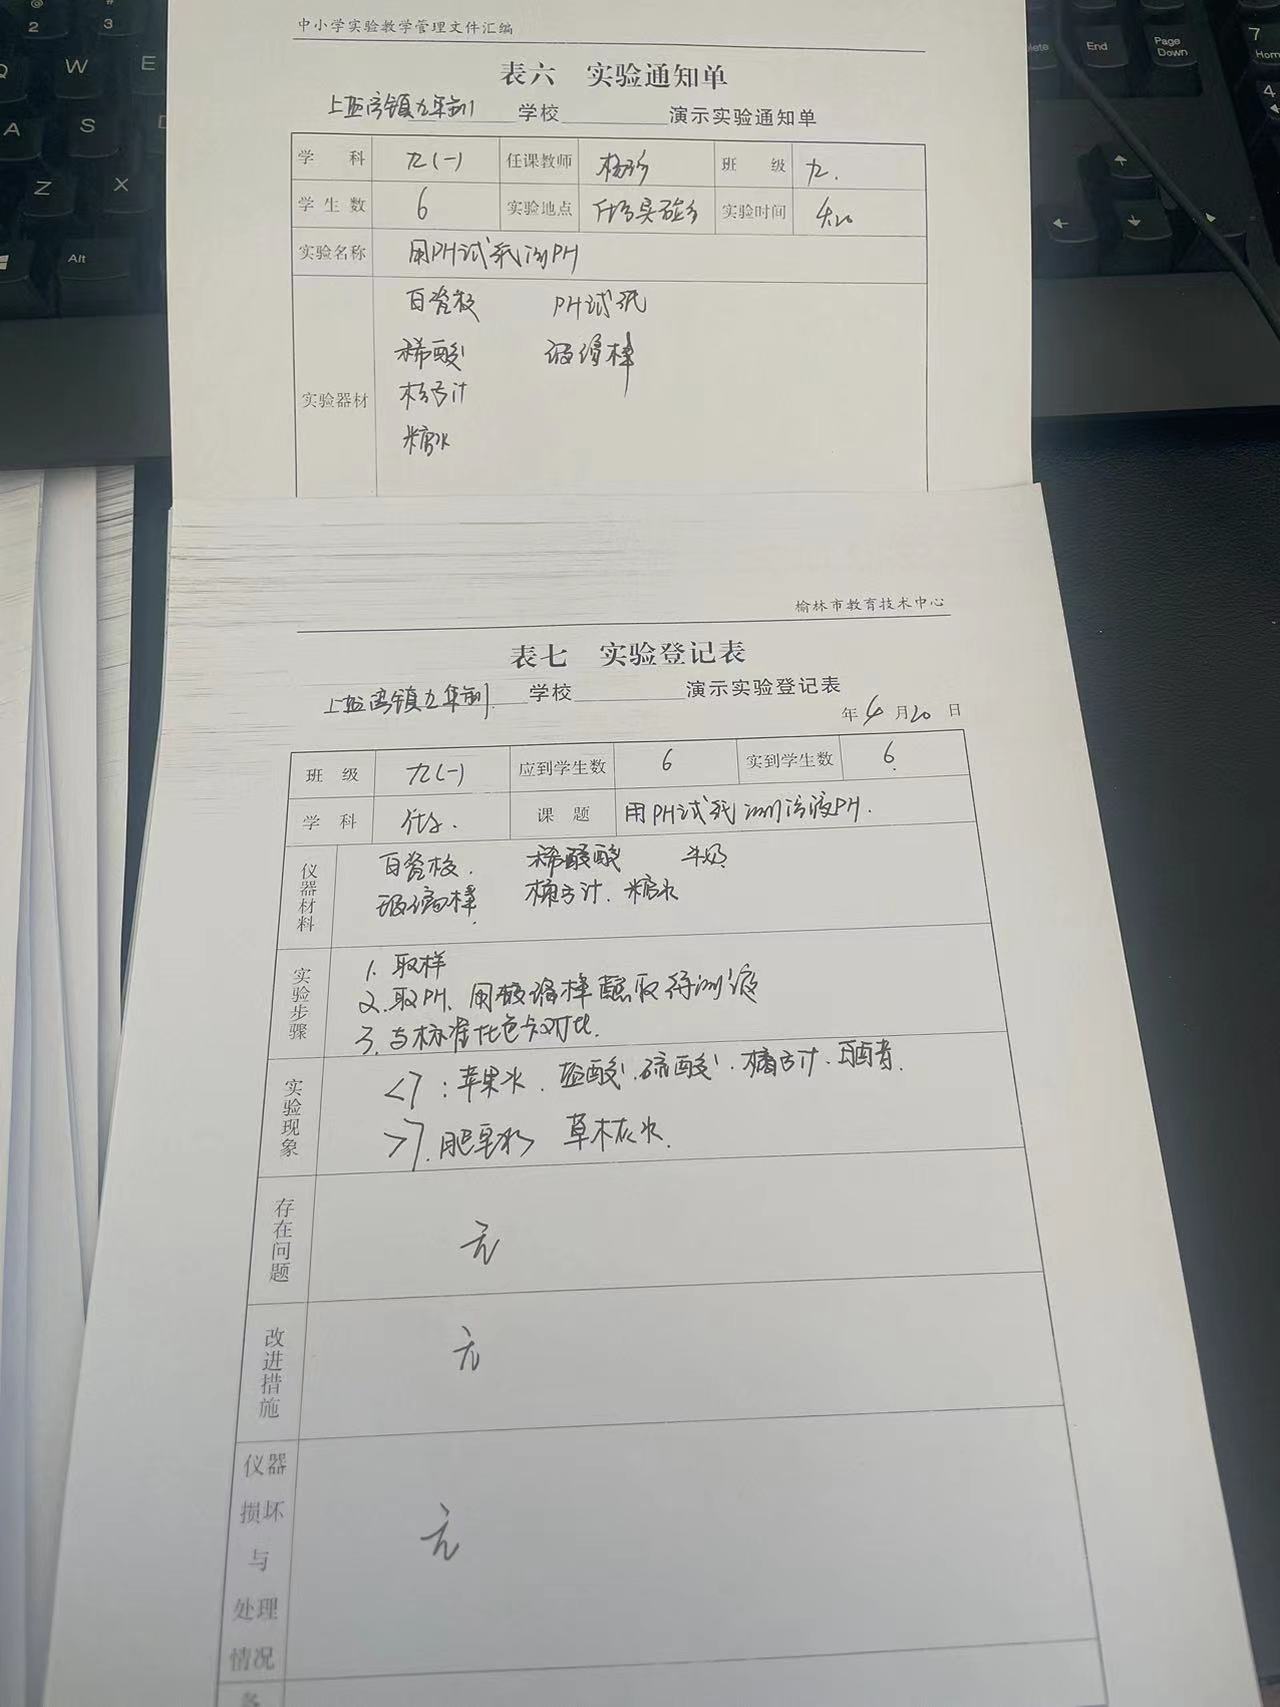 中小学实验教学管理文件汇编
表六 实验通知单
上盐湾镇九年制 学校 演示实验通知单
学 科 九(一) 任课教师 班 级 九.
学生数 6 实验地点 化学实验室 实验时间 4.20
实验名称 用PH试纸测PH
实验器材
白瓷板 PH试纸
稀酸 玻璃棒
橘子汁
糖水
榆林市教育技术中心
表七 实验登记表
上盐湾镇九年制 学校 演示实验登记表
年4月20日
班 级 九(一) 应到学生数 6 实到学生数 6.
学 科 化学. 课 题 用PH试纸测溶液PH.
仪器材料
白瓷板. 稀酸 牛奶
玻璃棒 橘子汁. 糖水
实验步骤
1. 取样
2. 取PH、用玻璃棒蘸取待测液
3. 与标准比色卡对比.
实验现象
<7:苹果水.盐酸.硫酸.橘子汁.
>7.肥皂水 草木灰水.
存在问题
无
改进措施
无
仪器损坏与处理情况
无